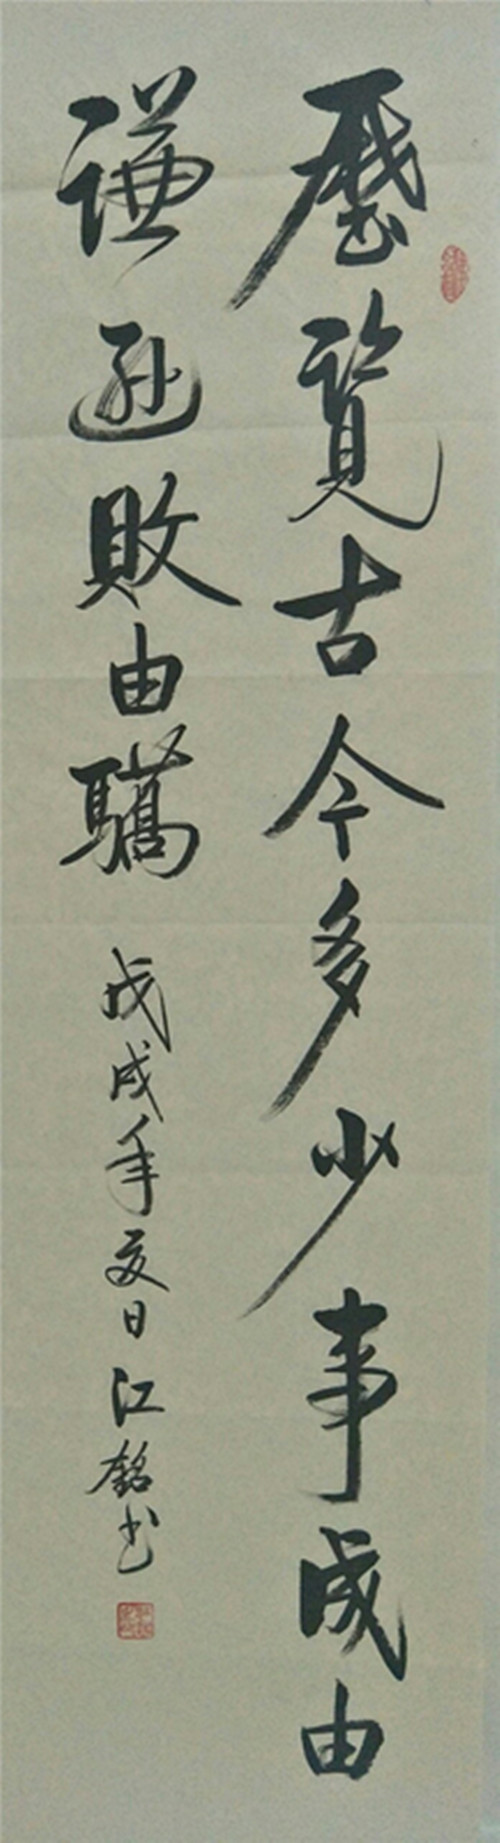 歷覽古今多少事成由
謙遜敗由驕
戊戌年夏日江銘书